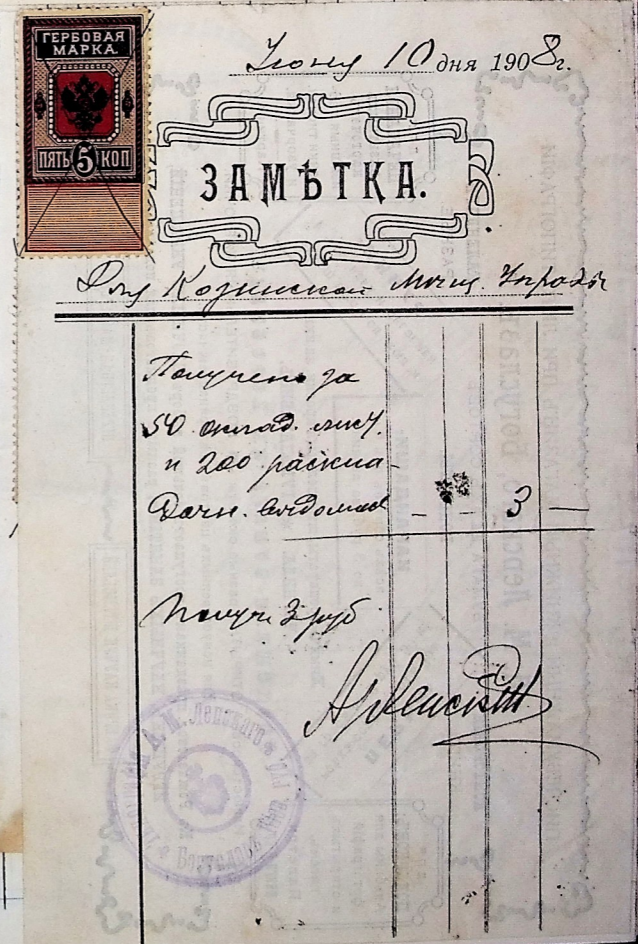 ГЕРБОВАЯ
МАРКА.
ПЯТЬ 5 КОП
Июня 10 дня 1908 г.
ЗАМѢТКА.
Для Козинской Мѣщ. Управы
Получено за
50 оклад. лист.
и 200 раскла-
дочн. вѣдомост — — 3 —
Получ. 3 руб
А. М. Лепскаго
Богуславъ Кіев. губ.